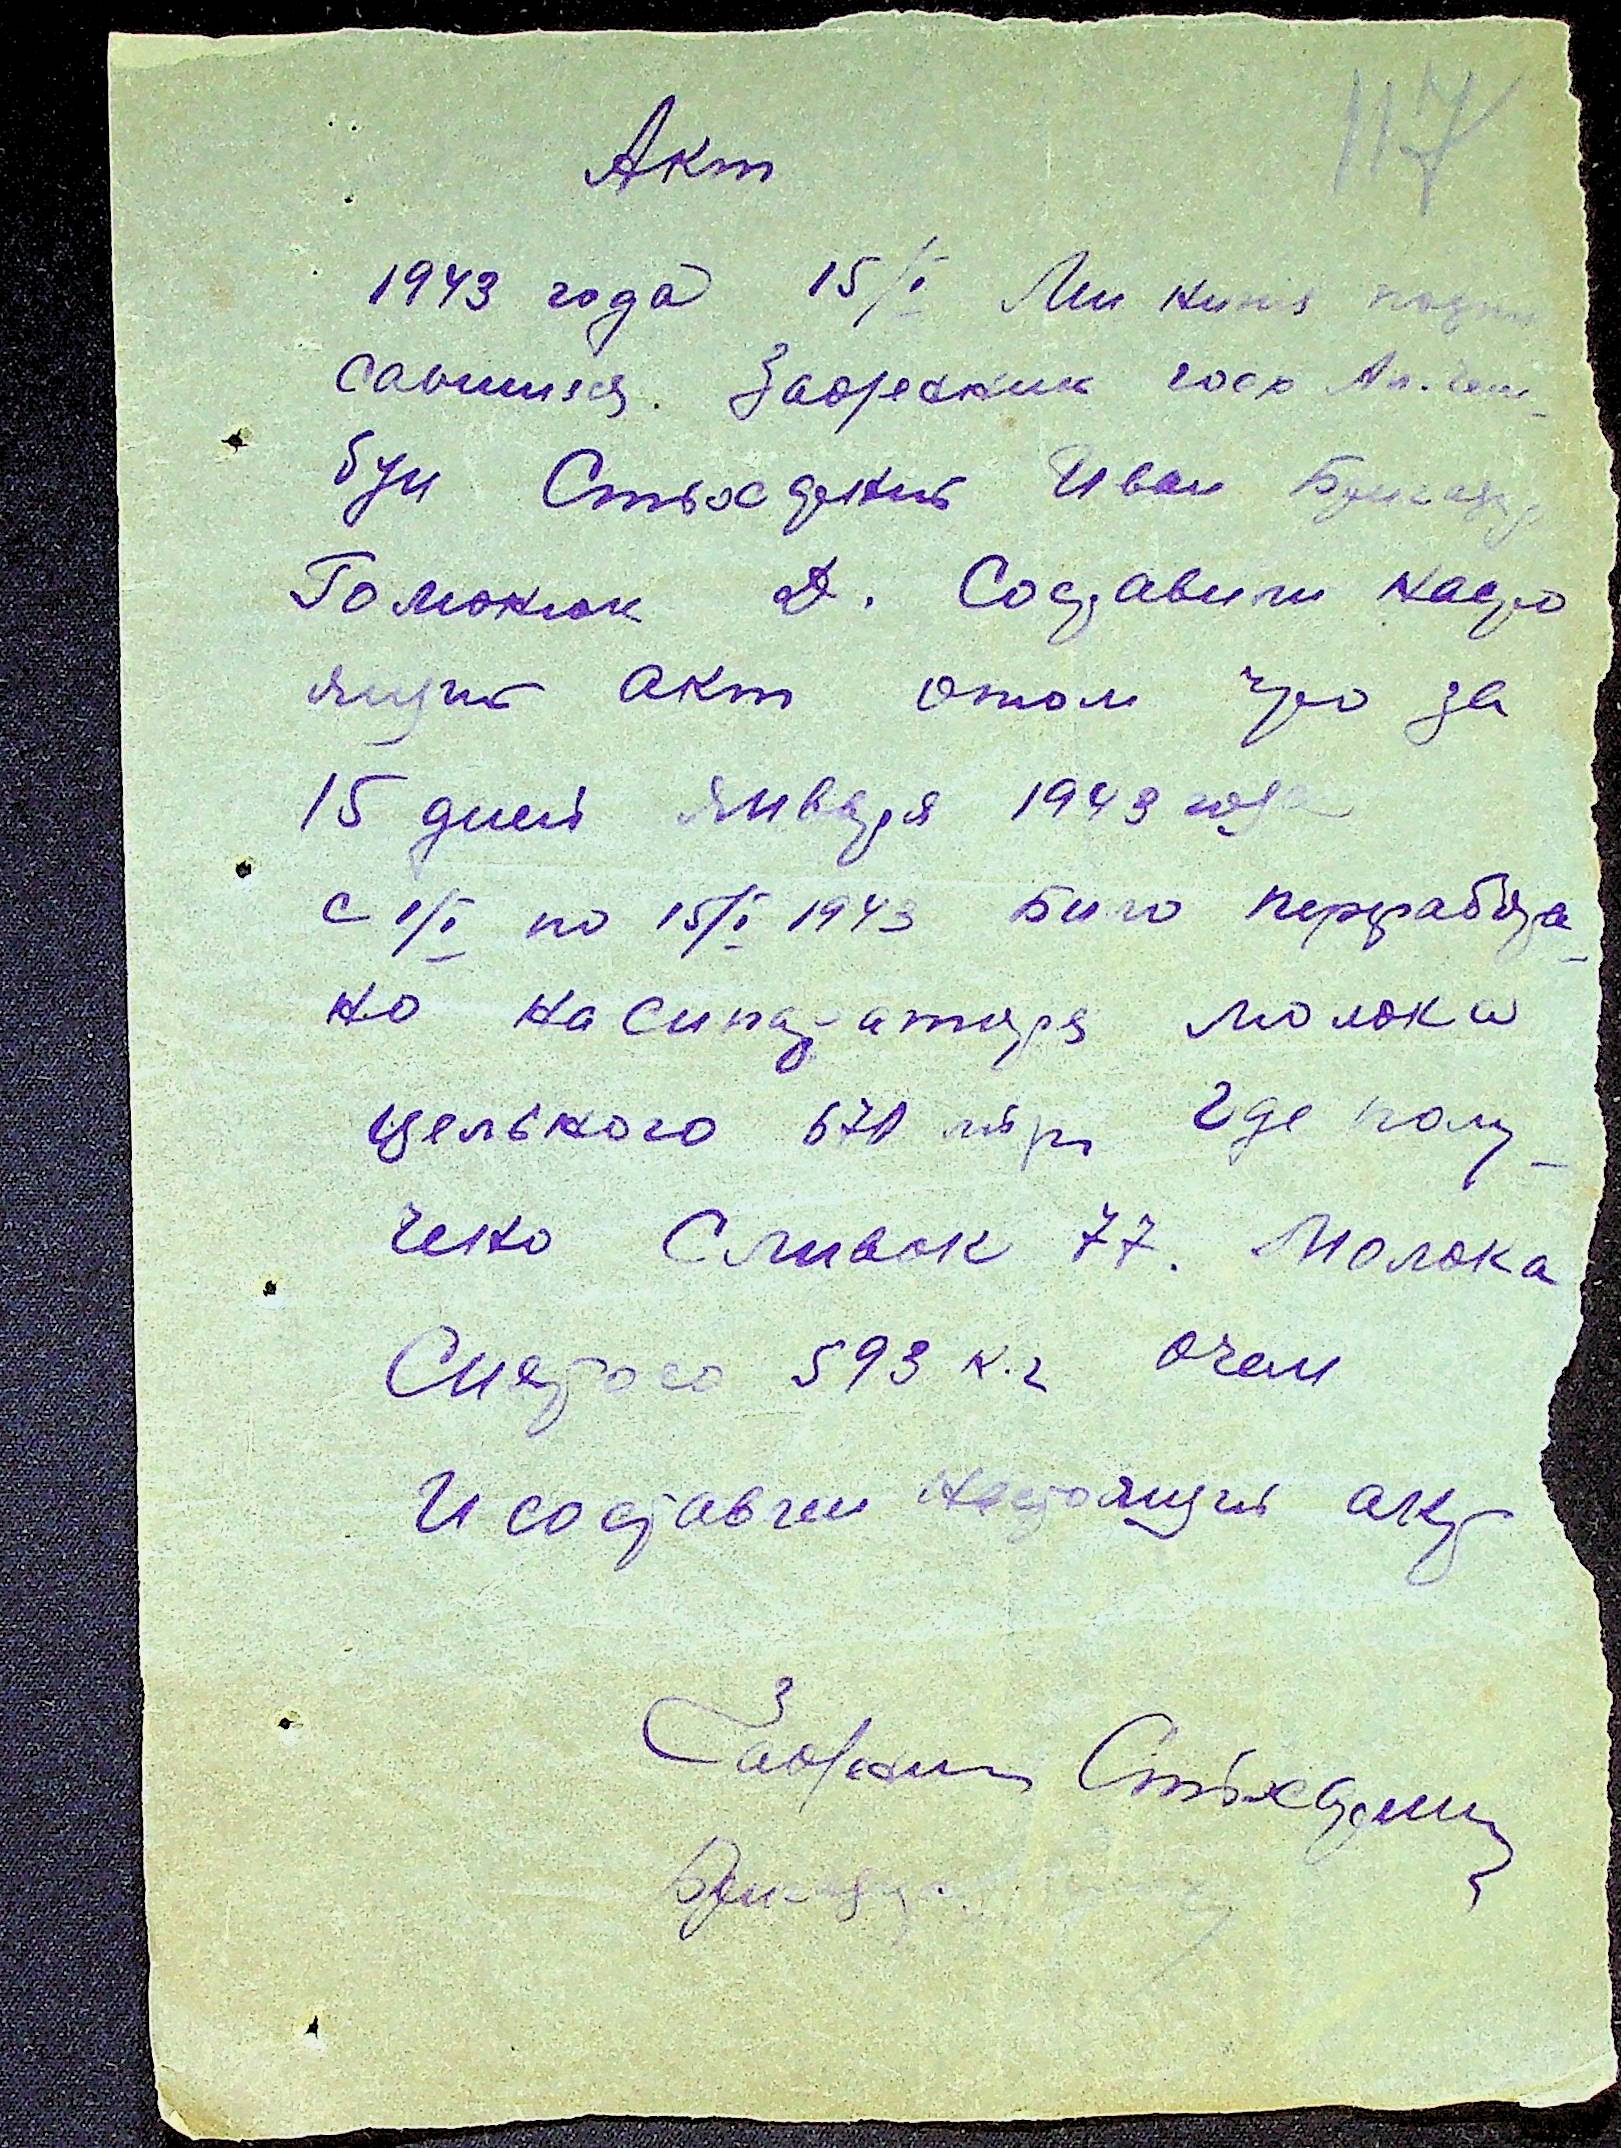 117
Акт
1943 года 15/I Ми ниня подпи
савшися. Заврехник госп Ал.
буи Стьохдний Иван Бригадр
Гомонюк Д. Составили насто
ящий акт отом что за
15 дней января 1943 года
с 1/I по 15/I 1943 Било переработа-
но на сипаратаря молока
цельного 670 литр Где полу-
чено Сливок 77. Молока
Снятого 593 к.г очем
И составлен настоящий акт
Бригадир